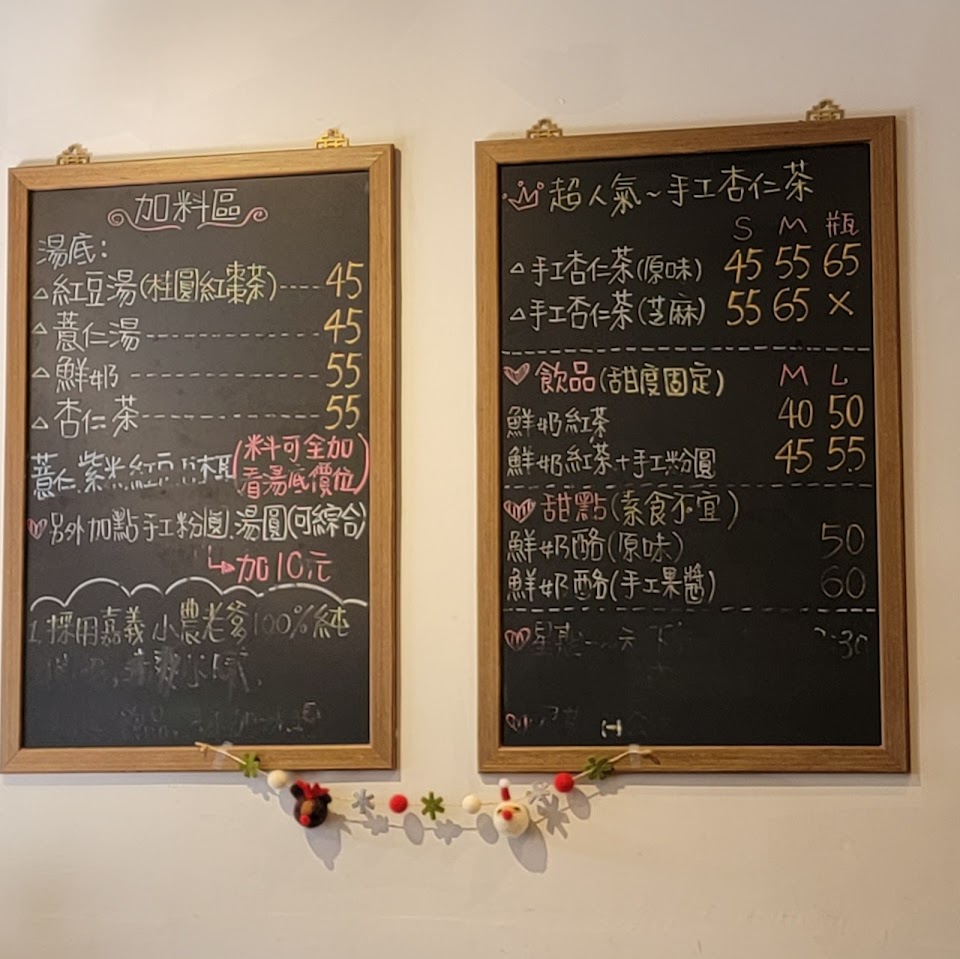 加料區
湯底：
△紅豆湯(桂圓紅棗茶)----45
△薏仁湯----------45
△鮮奶----------55
△杏仁茶----------55
薏仁.紫米.紅豆
(料可全加
看湯底價位)
♡另外加點手工粉圓.湯圓(可綜合)
↳加10元
1.採用嘉義小農老爹100%純
超人氣~手工杏仁茶
S M 瓶
△手工杏仁茶(原味) 45 55 65
△手工杏仁茶(芝麻) 55 65 ×
♡飲品(甜度固定) M L
鮮奶紅茶 40 50
鮮奶紅茶+手工粉圓 45 55
♡甜點(素食不宜)
鮮奶酪(原味) 50
鮮奶酪(手工果醬) 60